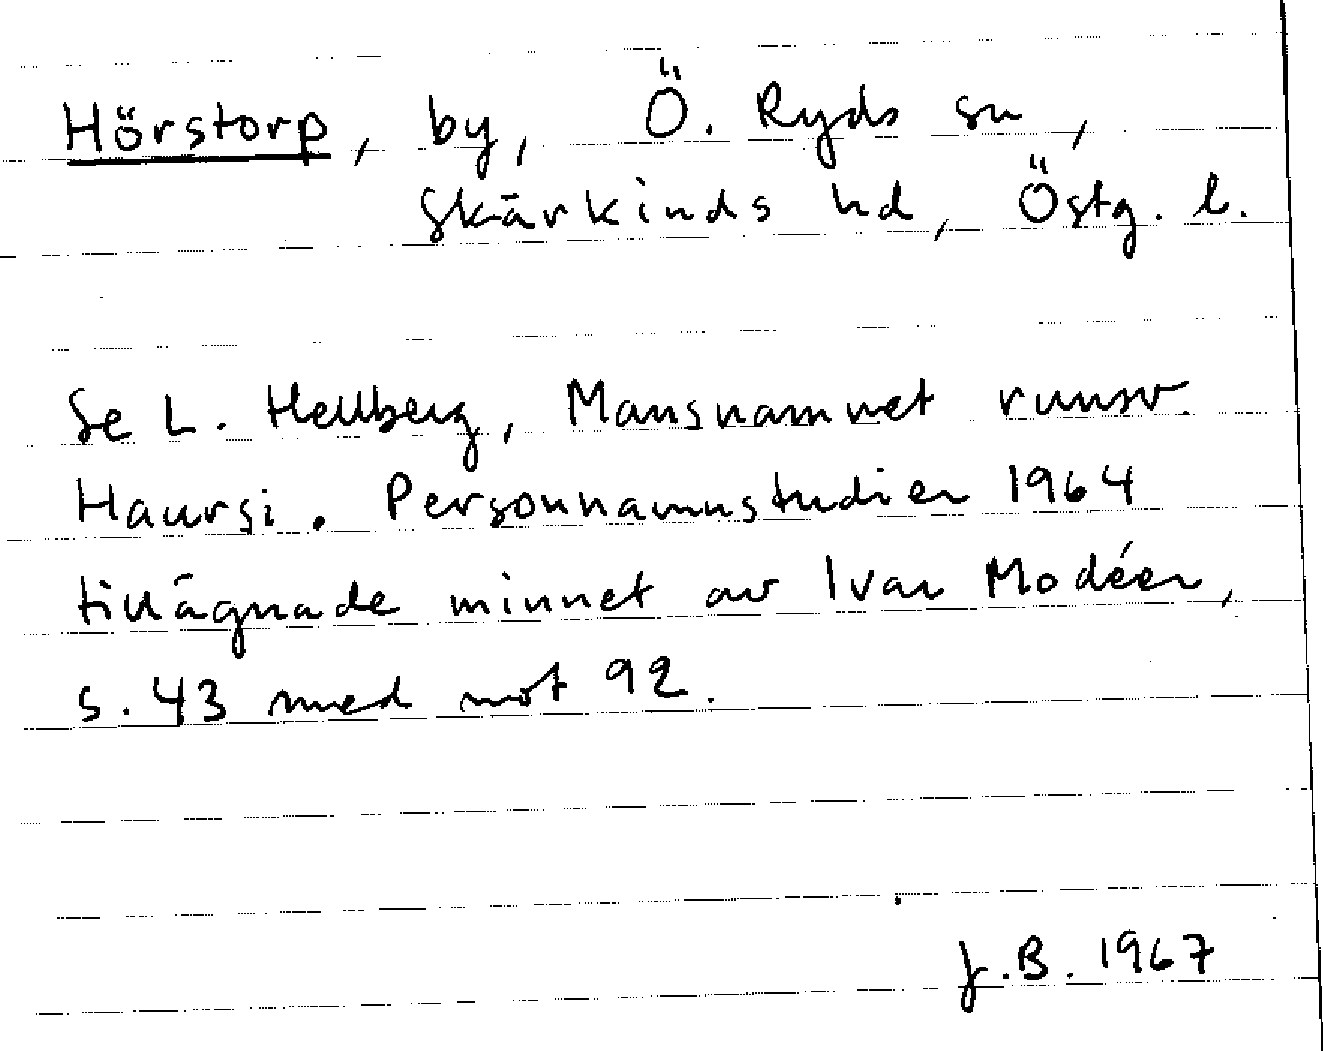 Hörstorp, by, Ö. Ryds sn,
Skärkinds hd, Östg. l.
Se L. Hellberg, Mansnamnet runsv.
Haursi. Personnamnstudier 1964
tillägnade minnet av Ivar Modéer,
s. 43 med not 92.
J.B. 1967